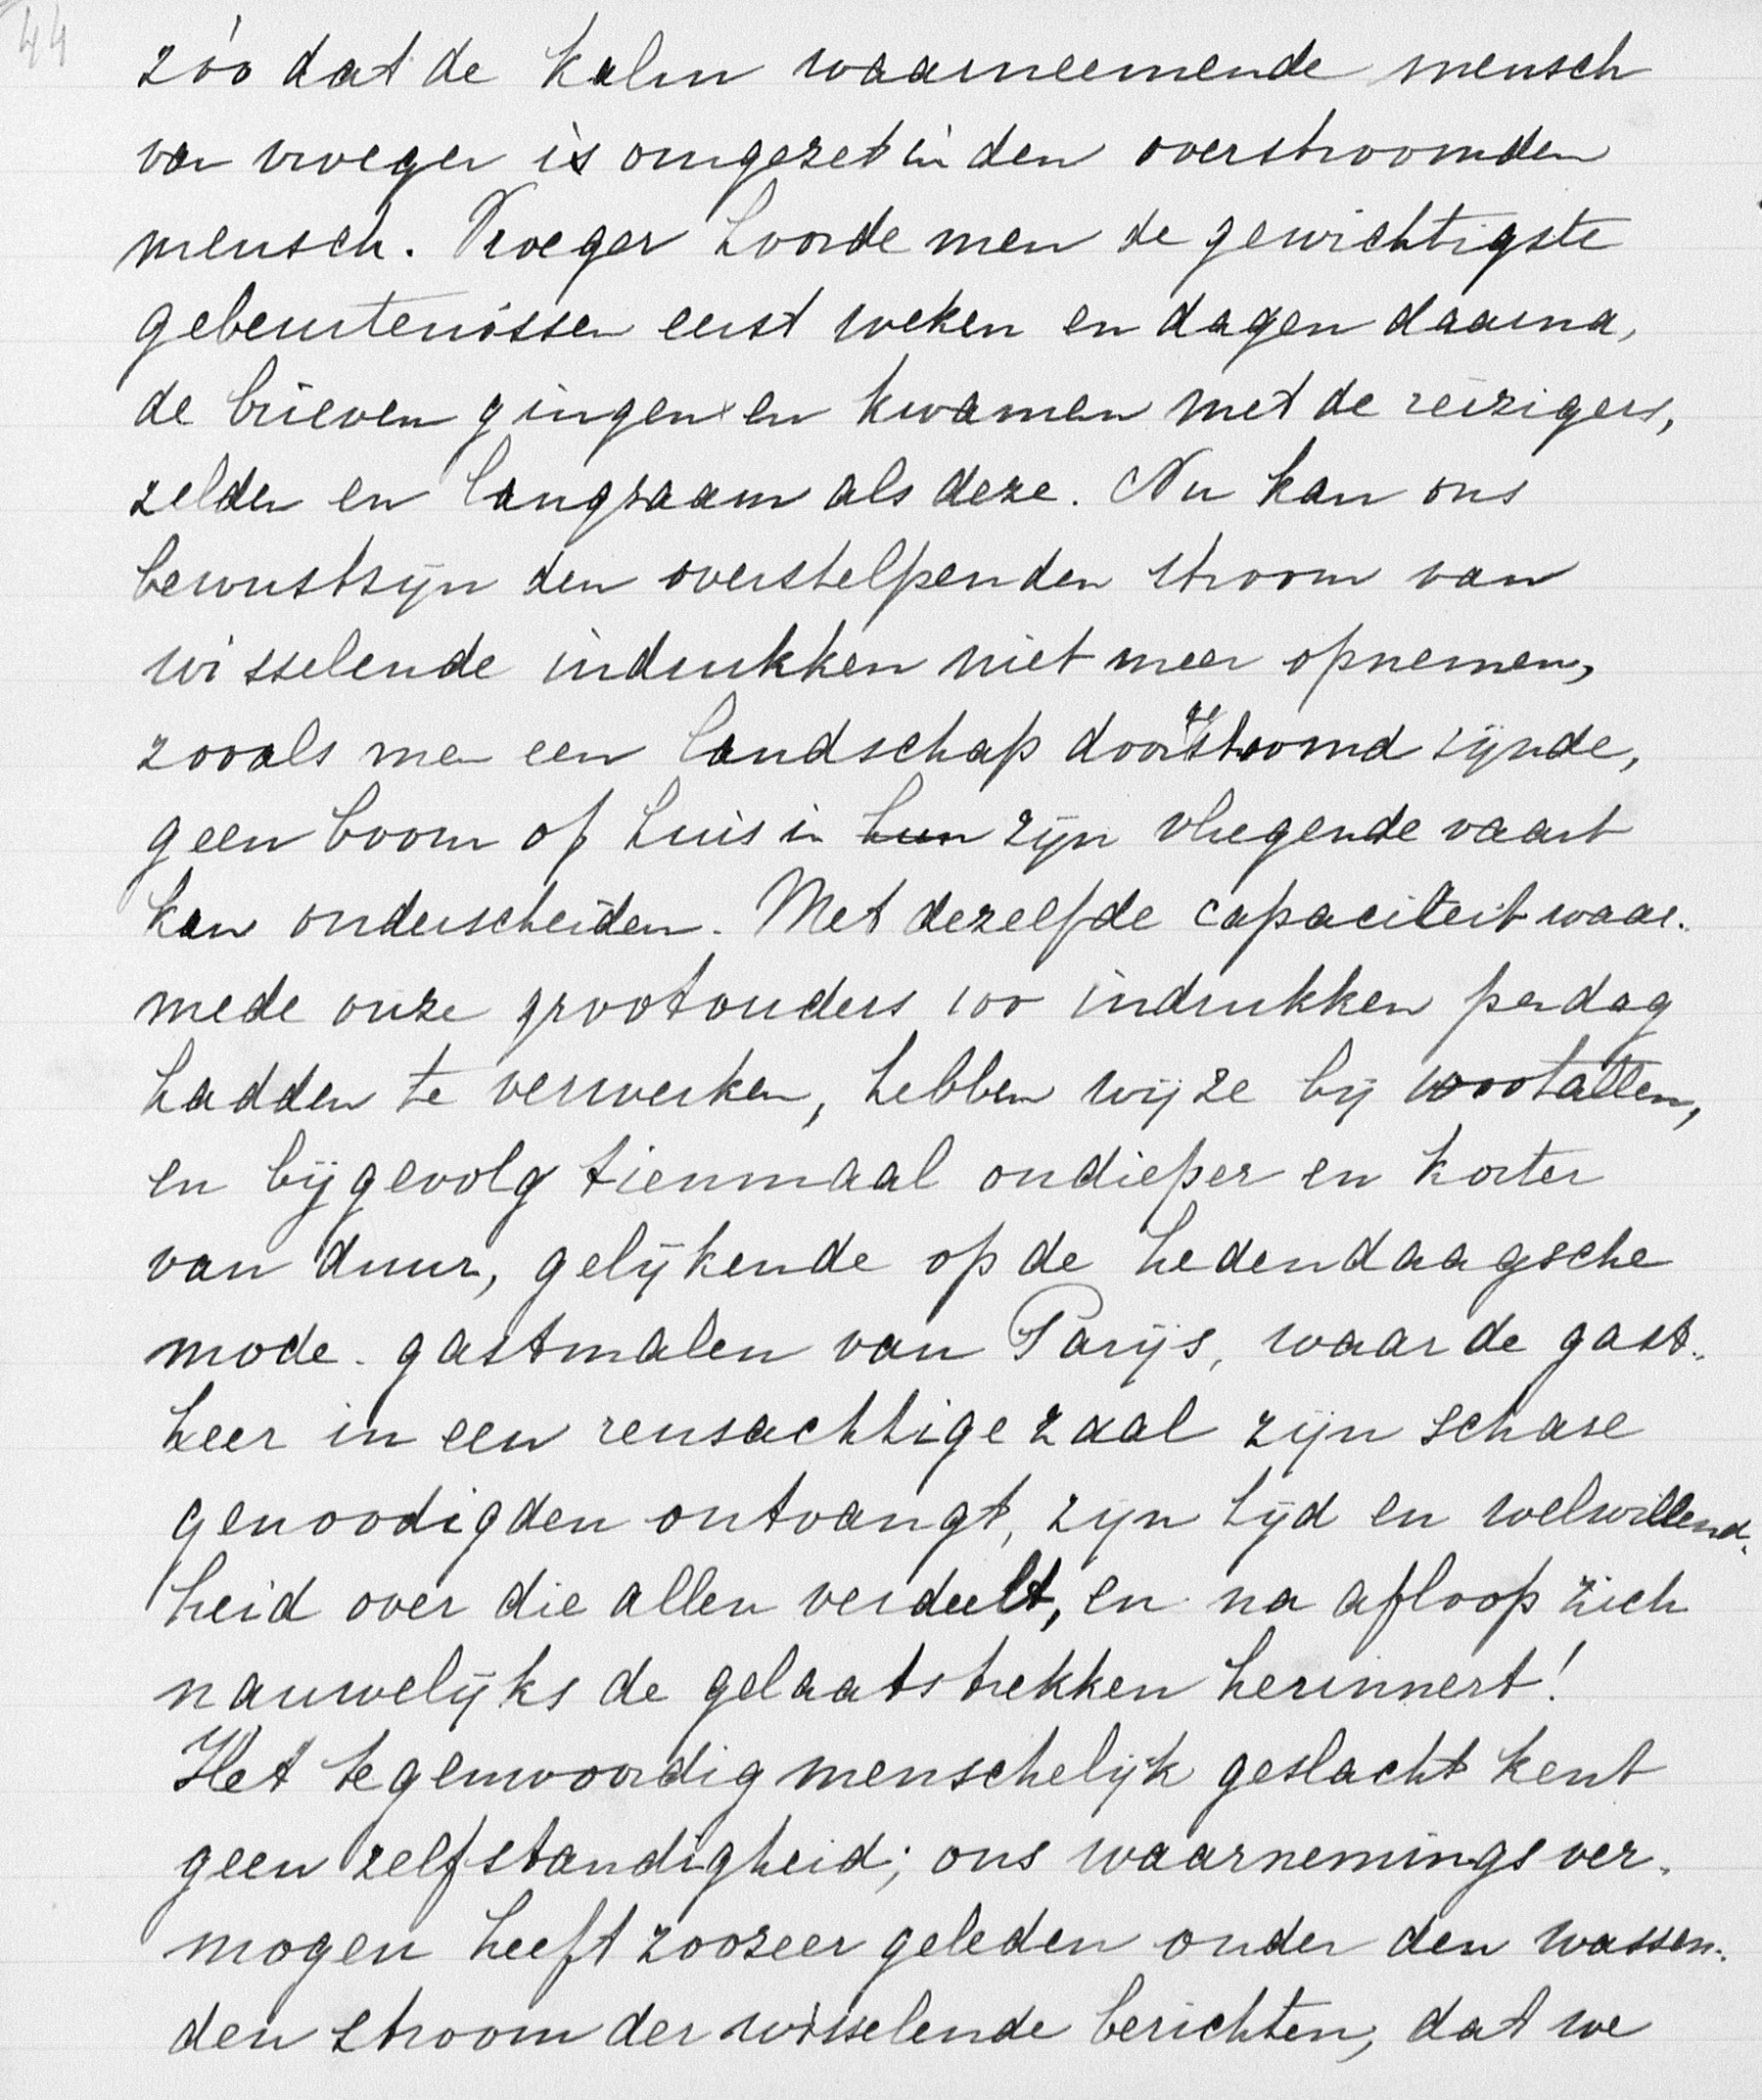 44
zóó dat de kalm waarneemende mensch
van vroeger is omgezet in den overstroomden
mensch. Vroeger hoorde men de gewichtigste
gebeurtenissen eerst weken en dagen daarna,
de brieven gingen en kwamen met de reizigers,
zelden en langzaam als deze. Nu kan ons
bewustzijn den overstelpenden stroom van
wisselende indrukken niet meer opnemen,
zooals men een landschap doorgestoomd zijnde,
geen boom of huis in hun zijn vliegende vaart
kan onderscheiden. Met dezelfde capaciteit waar-
mede onze grootouders 100 indrukken per dag
hadden te verwerken, hebben wij ze bij
en bijgevolg tienmaal ondieper en korter
van duur, gelijkende op de hedendaagsche
mode-gastmalen van Parijs, waar de gast-
heer in een reusachtige zaal zijn schare
genoodigden ontvangt, zijn tijd en welwillend-
heid over die allen verdeelt, en na afloop zich
nauwelijks de gelaatstrekken herinnert!
Het tegenwoordig menschelijk geslacht kent
geen zelfstandigheid; ons waarnemingsver-
mogen heeft zoozeer geleden onder den wassen-
den stroom der wisselende berichten, dat we